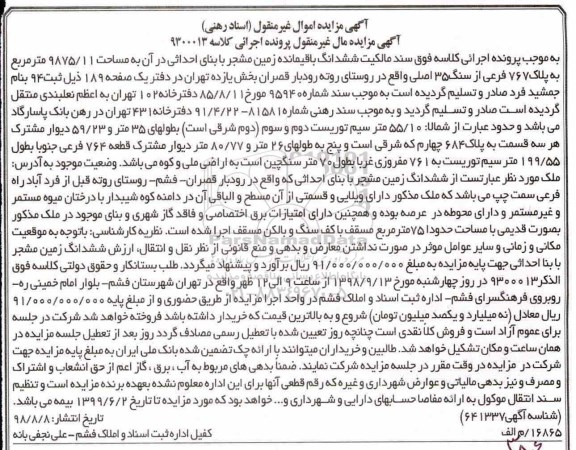 آگهی مزایده اموال غیرمنقول (اسناد رهنی)
آگهی مزایده مال غیرمنقول پرونده اجرائی کلاسه ۹۳۰۰۰۱۳
به موجب پرونده اجرائی کلاسه فوق سند مالکیت ششدانگ باقیمانده زمین مشجر با بنای احداثی در آن به مساحت ۹۸۷۵/۱۱ مترمربع
به پلاک ۷۶۷ فرعی از سنگ ۳۵ اصلی واقع در روستای روته رودبار قصران بخش یازده تهران در دفتر یک صفحه ۱۸۹ ذیل ثبت ۹۴ بنام
جمشید فرد صادر و تسلیم گردیده است به موجب سند شماره ۹۵۹۴ مورخ ۸۵/۸/۱۱ دفترخانه ۱۰۲ تهران به اعظم نعلبندی منتقل
گردیده است صادر و تسلیم گردید و به موجب سند رهنی شماره ۸۱۵۸۱-۹۱/۴/۲۲ دفترخانه ۴۳۱ تهران در رهن بانک پاسارگاد
می باشد و حدود عبارت از شمالا: ۵۵/۱۰ متر سیم توریست دوم و سوم (دوم شرقی است) بطولهای ۳۵ متر و ۵۹/۲۳ دیوار مشترک
هر سه قسمت به پلاک ۶۸۴ چهارم که شرقی است و پنج به طولهای ۲۶ متر و ۸۰/۷۷ متر دیوار مشترک قطعه ۷۶۴ فرعی جنوبا بطول
۱۹۹/۵۵ متر سیم توریست به ۷۶۱ مفروزی غربا بطول ۷۰ متر سنگچین است به اراضی ملی و کوه می باشد. وضعیت موجود به آدرس:
ملک مورد نظر عبارتست از ششدانگ زمین مشجر با بنای احداثی که واقع در رودبار قصران- فشم- روستای روته قبل از فرد آباد راه
فرعی سمت چپ می باشد که ملک مذکور دارای ویلایی و قسمتی از آن مسطح و الباقی آن در دامنه کوه شیبدار با درختان میوه مستمر
و غیرمستمر و دارای محوطه در عرصه بوده و همچنین دارای امتیازات برق اختصاصی و فاقد گاز شهری و بنای موجود در ملک مذکور
بصورت قدیمی با مساحت حدودا ۷۵ مترمربع مسقف با کف سنگ و بالکن مسقف اجرا شده است. نظریه کارشناسی: باتوجه به موقعیت
مکانی و زمانی و سایر عوامل موثر در صورت نداشتن معارض و بدهی و منع قانونی از نظر نقل و انتقال، ارزش ششدانگ زمین مشجر
با بنا احداثی جهت پایه مزایده به مبلغ ۹۱/۰۰۰/۰۰۰/۰۰۰ ریال برآورد و پیشنهاد میگردد. طلب بستانکار و حقوق دولتی کلاسه فوق
الذکر ۹۳۰۰۰۱۳ در روز چهارشنبه مورخ ۱۳۹۸/۹/۱۳ از ساعت ۹ الی ۱۲ ظهر واقع در تهران شهرستان فشم- بلوار امام خمینی ره-
روبروی فرهنگسرای فشم- اداره ثبت اسناد و املاک فشم در واحد اجرا مزایده از طریق حضوری و از مبلغ پایه ۹۱/۰۰۰/۰۰۰/۰۰۰
ریال معادل (نه میلیارد و یکصد میلیون تومان) شروع و به بالاترین قیمت که خریدار داشته باشد فروخته خواهد شد شرکت در جلسه
برای عموم آزاد است و فروش کلا نقدی است چنانچه روز تعیین شده با تعطیل رسمی مصادف گردد روز بعد از تعطیل جلسه مزایده در
همان ساعت و مکان تشکیل خواهد شد. طالبین و خریداران میتوانند با ارائه چک تضمین شده بانک ملی ایران به مبلغ پایه مزایده جهت
شرکت در مزایده در وقت مقرر در جلسه مزایده شرکت نمایند. ضمنا بدهی های مربوط به آب، برق، گاز اعم از حق انشعاب و اشتراک
و مصرف و نیز بدهی مالیاتی و عوارض شهرداری و غیره که رقم قطعی آنها برای این اداره معلوم نشده بعهده برنده مزایده است و تنظیم
سند انتقال موکول به ارائه مفاصا حسابهای دارایی و شهرداری و... خواهد بود که مورد مزایده تا تاریخ ۱۳۹۹/۶/۲ بیمه می باشد.
(شناسه آگهی ۶۴۱۳۳۷) تاریخ انتشار: ۹۸/۸/۸
۱۶۸۶۵/م الف کفیل اداره ثبت اسناد و املاک فشم- علی نجفی بانه